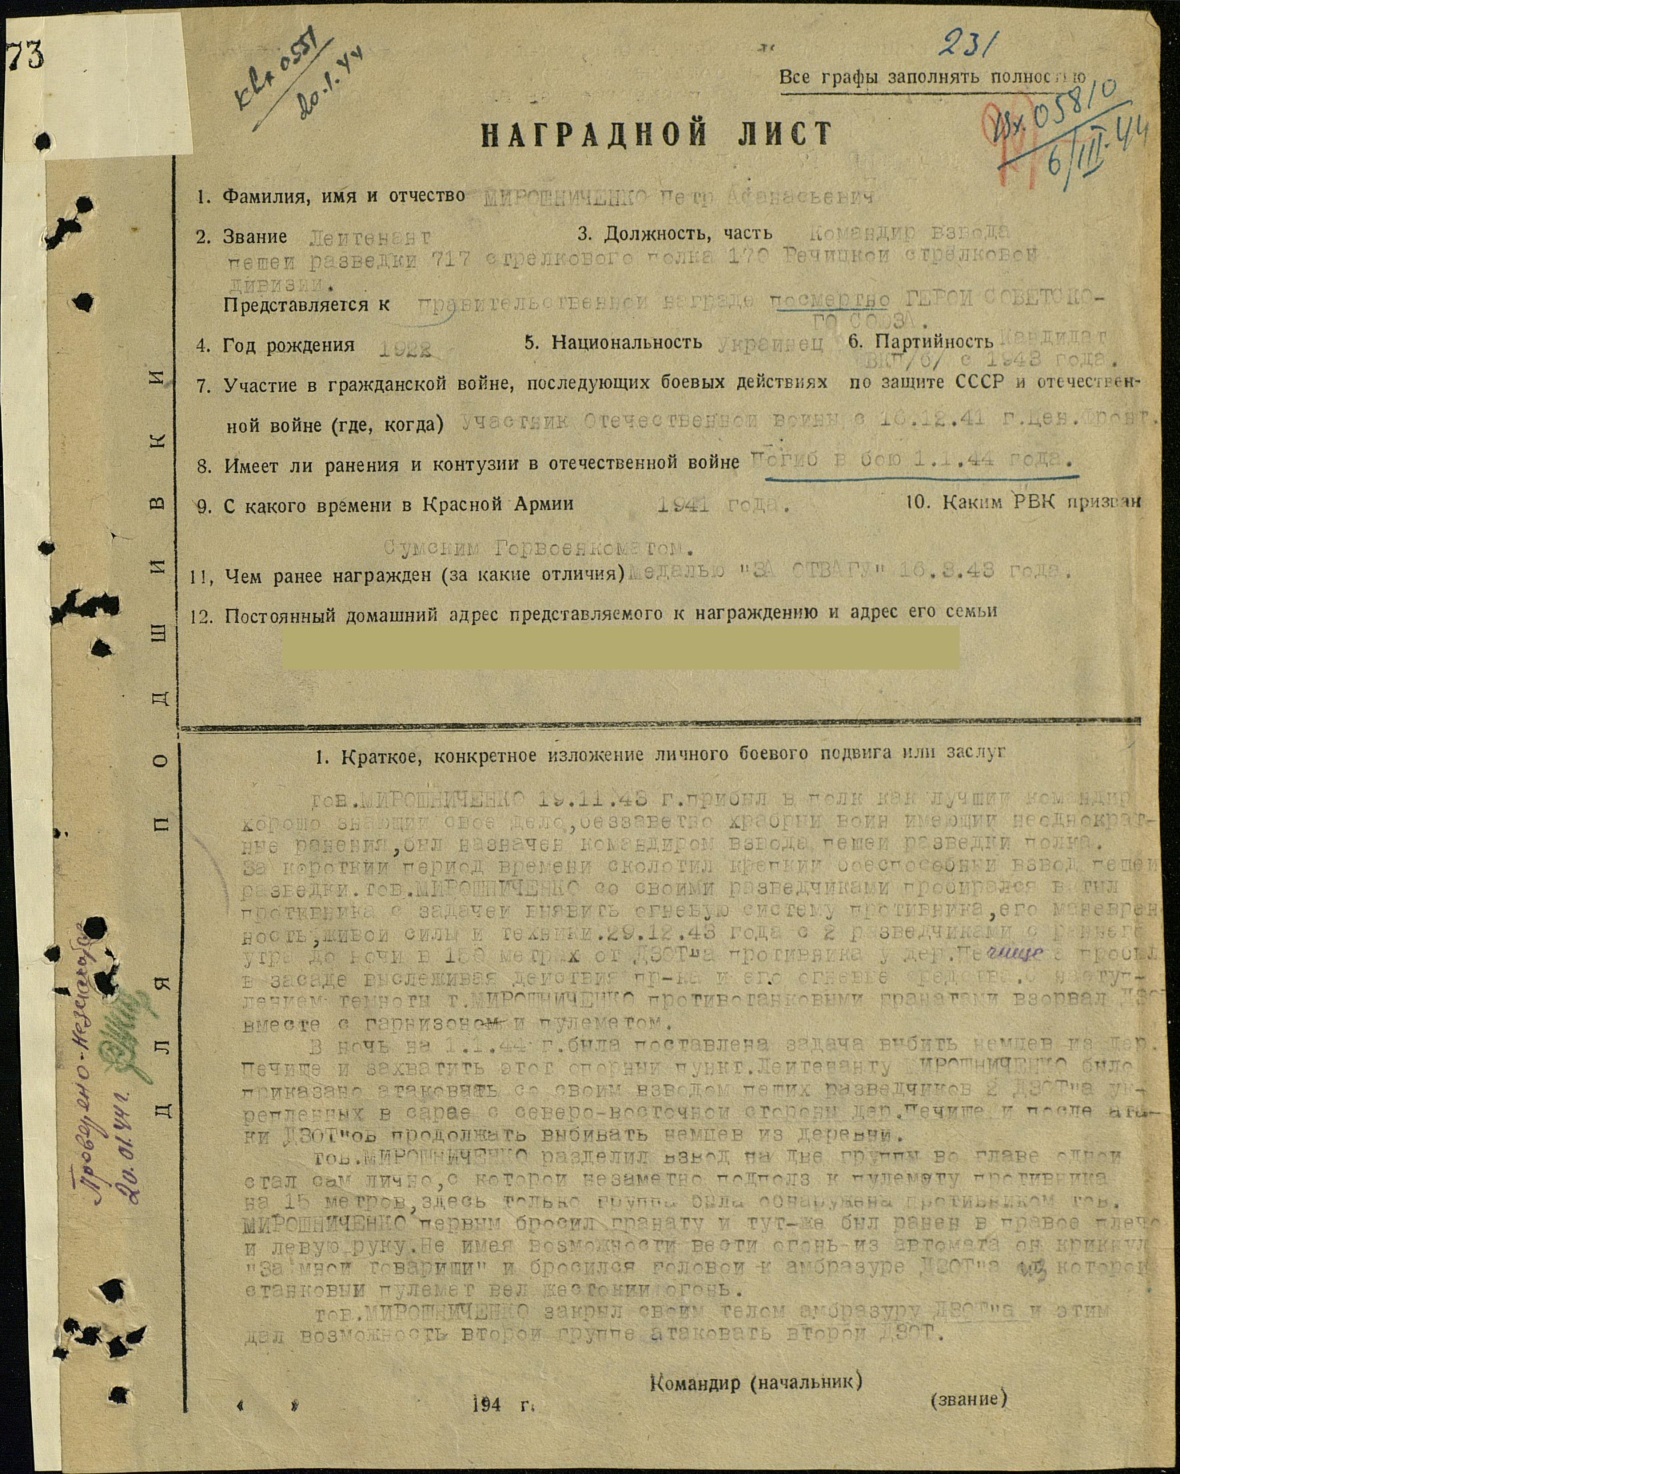 73
квх 0551
20.1.44
231
Все графы заполнять полностью
Вх. 05810
6/III-44
НАГРАДНОЙ ЛИСТ
1. Фамилия, имя и отчество МИРОШНИЧЕНКО Петр Афанасьевич
2. Звание Лейтенант 3. Должность, часть Командир взвода
пешей разведки 717 стрелкового полка 170 Речицкой стрелковой
дивизии.
Представляется к правительственной награде посмертно ГЕРОЙ СОВЕТСКО-
ГО СОЮЗА.
4. Год рождения 1922 5. Национальность Украинец 6. Партийность Кандидат
ВКП/б/ с 1943 года.
7. Участие в гражданской войне, последующих боевых действиях по защите СССР и отечествен-
ной войне (где, когда) Участник Отечественной войны с 10.12.41 г.Цен.Фронт.
8. Имеет ли ранения и контузии в отечественной войне Погиб в бою 1.1.44 года.
9. С какого времени в Красной Армии 1941 года. 10. Каким РВК призван
Сумским Горвоенкоматом.
11, Чем ранее награжден (за какие отличия) Медалью "ЗА ОТВАГУ" 16.3.43 года.
12. Постоянный домашний адрес представляемого к награждению и адрес его семьи
ДЛЯ ПОДШИВКИ
1. Краткое, конкретное изложение личного боевого подвига или заслуг
тов.МИРОШНИЧЕНКО 19.11.43 г.прибыл в полк как лучший командир
хорошо знающий свое дело,беззаветно храбрый воин имеющий неоднократ-
ные ранения,был назначен командиром взвода пешей разведки полка.
За короткий период времени сколотил крепкий боеспособный взвод пешей
разведки.тов.МИРОШНИЧЕНКО со своими разведчиками пробирался в тыл
противника с задачей выявить огневую систему противника,его маневрен-
ность,живой силы и техники.29.12.43 года с 2 разведчиками с раннего
утра до ночи в 150 метрах от ДЗОТ"а противника у дер.Печище пробыл
в засаде выслеживая действия пр-ка и его огневые средства.С наступ-
лением темноты т.МИРОШНИЧЕНКО противотанковыми гранатами взорвал ДЗОТ
вместе с гарнизоном и пулеметом.
В ночь на 1.1.44 г.была поставлена задача выбить немцев из дер.
Печище и захватить этот опорный пункт.Лейтенанту МИРОШНИЧЕНКО было
приказано атаковать со своим взводом пеших разведчиков 2 ДЗОТ"а ук-
репленных в сарае с северо-восточной стороны дер.Печище и после ата-
ки ДЗОТ"ов продолжать выбивать немцев из деревни.
тов.МИРОШНИЧЕНКО разделил взвод на две группы во главе одной
стал сам лично,с которой незаметно подполз к пулемету противника
на 15 метров,здесь только группа была обнаружена противником тов.
МИРОШНИЧЕНКО первым бросил гранату и тут-же был ранен в правое плечо
и левую руку.Не имея возможности вести огонь из автомата он крикнул
"За мной товарищи" и бросился головой к амбразуре ДЗОТ"а из которой
станковый пулемет вел жестокий огонь.
тов.МИРОШНИЧЕНКО закрыл своим телом амбразуру ДЗОТ"а и этим
дал возможность второй группе атаковать второй ДЗОТ.
Командир (начальник)
(звание)
" " 194 г.
Проверено-
20.01.44 г.